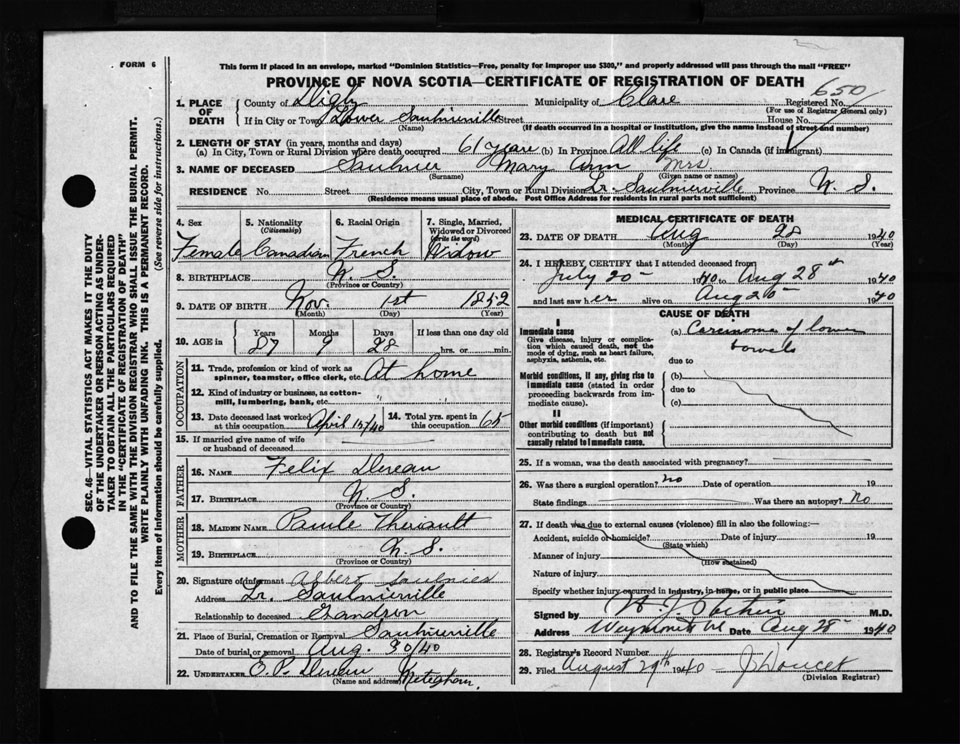 FORM 6
This form if placed in an envelope, marked "Dominion Statistics—Free, penalty for improper use $300," and properly addressed will pass through the mail "FREE"
PROVINCE OF NOVA SCOTIA—CERTIFICATE OF REGISTRATION OF DEATH
650
1. PLACE OF DEATH
County of Digby Municipality of Clare Registered No.
(For use of Registrar General only)
If in City or Town Lower Saulnierville Street House No.
(Name) (If death occurred in a hospital or institution, give the name instead of street and number)
2. LENGTH OF STAY (in years, months and days)
(a) In City, Town or Rural Division where death occurred 61 years (b) In Province All life (c) In Canada (if immigrant)
3. NAME OF DECEASED Saulnier Mary Ann Mrs
(Surname) (Given name or names)
RESIDENCE No. Street City, Town or Rural Division Lr. Saulnierville Province N. S.
(Residence means usual place of abode. Post Office Address for residents in rural parts not sufficient)
SEC. 46—VITAL STATISTICS ACT MAKES IT THE DUTY
OF THE UNDERTAKER OR PERSON ACTING AS UNDER-
TAKER TO OBTAIN ALL THE PARTICULARS REQUIRED
IN THE "CERTIFICATE OF REGISTRATION OF DEATH"
AND TO FILE THE SAME WITH THE DIVISION REGISTRAR WHO SHALL ISSUE THE BURIAL PERMIT.
WRITE PLAINLY WITH UNFADING INK. THIS IS A PERMANENT RECORD.
Every item of Information should be carefully supplied. (See reverse side for instructions.)
4. Sex 5. Nationality 6. Racial Origin 7. Single, Married,
(Citizenship) Widowed or Divorced
(Write the word)
Female Canadian French Widow
8. BIRTHPLACE N. S.
(Province or Country)
9. DATE OF BIRTH Nov. 1st 1852
(Month) (Day) (Year)
10. AGE in
Years Months Days If less than one day old
87 9 28 hrs. or min.
OCCUPATION
11. Trade, profession or kind of work as
spinner, teamster, office clerk, etc. At home
12. Kind of industry or business, as cotton-
mill, lumbering, bank, etc. " "
13. Date deceased last worked
at this occupation April 15/40
14. Total yrs. spent in
this occupation 65
15. If married give name of wife
or husband of deceased
FATHER
16. NAME Felix Dereau
17. BIRTHPLACE N. S.
(Province or Country)
MOTHER
18. MAIDEN NAME Paule Theriault
19. BIRTHPLACE N. S.
(Province or Country)
20. Signature of informant Albert Saulnier
Address Lr. Saulnierville
Relationship to deceased Gandson
21. Place of Burial, Cremation or Removal Saulnierville
Date of burial or removal Aug. 30/40
22. UNDERTAKER O. P. Dereau Meteghan.
(Name and address)
MEDICAL CERTIFICATE OF DEATH
23. DATE OF DEATH Aug 28 1940
(Month) (Day) (Year)
24. I HEREBY CERTIFY that I attended deceased from
July 20 - 1940 to Aug 28th 1940
and last saw her alive on Aug 20 - 1940
CAUSE OF DEATH
I
Immediate cause
Give disease, injury or complica-
tion which caused death, not the
mode of dying, such as heart failure,
asphyxia, asthenia, etc.
(a) Carcinoma of lower
bowels
due to
Morbid conditions, if any, giving rise to
immediate cause (stated in order
proceeding backwards from im-
mediate cause).
(b)
due to
(c)
II
Other morbid conditions (if important)
contributing to death but not
causally related to immediate cause.
25. If a woman, was the death associated with pregnancy?
26. Was there a surgical operation? no Date of operation 19
State findings Was there an autopsy? no
27. If death was due to external causes (violence) fill in also the following:—
Accident, suicide or homicide? Date of injury 19
(State which)
Manner of injury
(How sustained)
Nature of injury
Specify whether injury occurred in industry, in home, or in public place
Signed by M.D.
Address Date Aug 28 - 1940
28. Registrar's Record Number
29. Filed August 29th 1940 J Doucet
(Division Registrar)